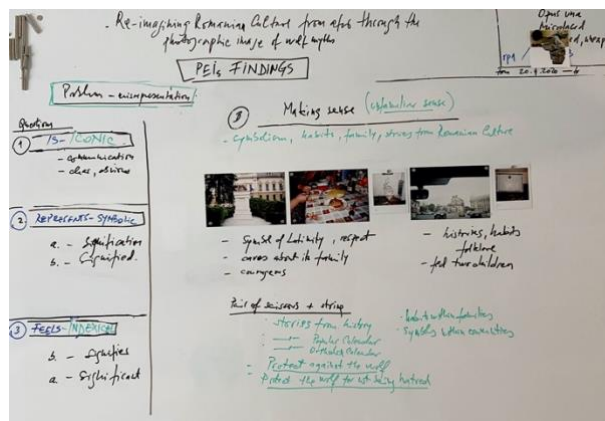 - Re-imagining Romanian Culture from afar through the
photographic image of wolf myths
Opus una
PEI, FINDINGS
Problem - misrepresentation
from 20.9.2020
Question
1 IS - ICONIC
- communication
- clear, obvious
2 REPRESENTS - SYMBOLIC
a. - Signification
b. - Signified.
3 FEELS - INDEXICAL
b. - Signifies
a. - Significant
3 Making sense (unfamiliar sense)
- symbolism, habits, family, stories from Romanian Culture
- Symbol of Latinity, respect
- cares about its family
- courageous
- histories, habits
folklore
- fed two children
Pair of scissors + string
: stories from history
Popular Calendar
Orthodox Calendar
= Protect against the wolf
Protect the wolf for not being hatred
- habits within families
- Symbols within conventions